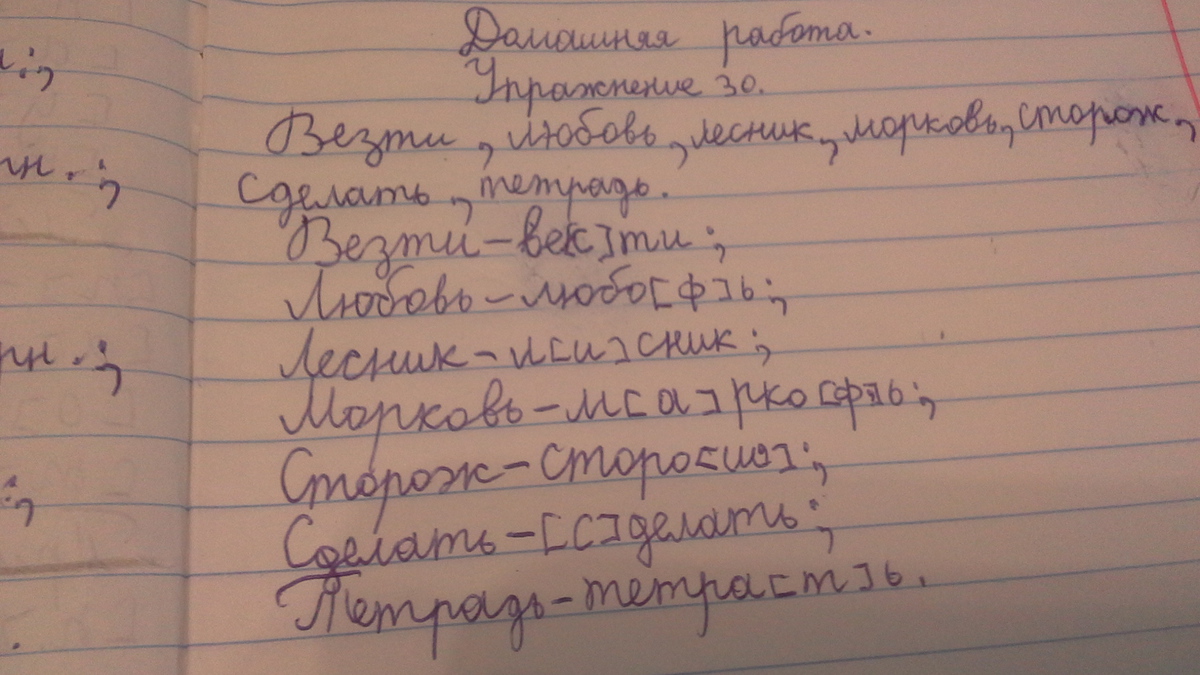 Домашняя работа.
Упражнение 30.
Везти, любовь, лесник, морковь, сторож,
сделать, тетрадь.
Везти – ве[с]ти;
Любовь – любо[ф]ь;
Лесник – л[и]сник;
Морковь – м[а]рко[ф]ь;
Сторож – сторо[ш];
Сделать – [с]делать;
Тетрадь – тетра[т]ь.